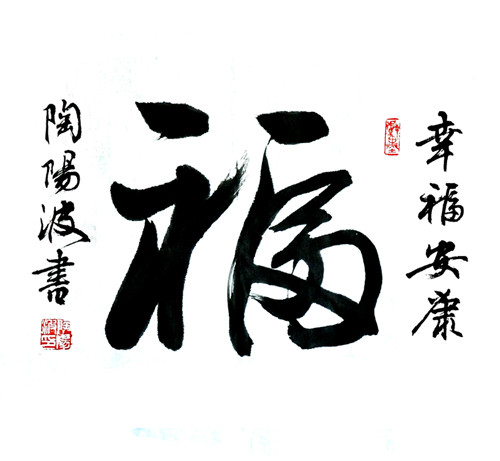 幸福安康
福
陶陽波書